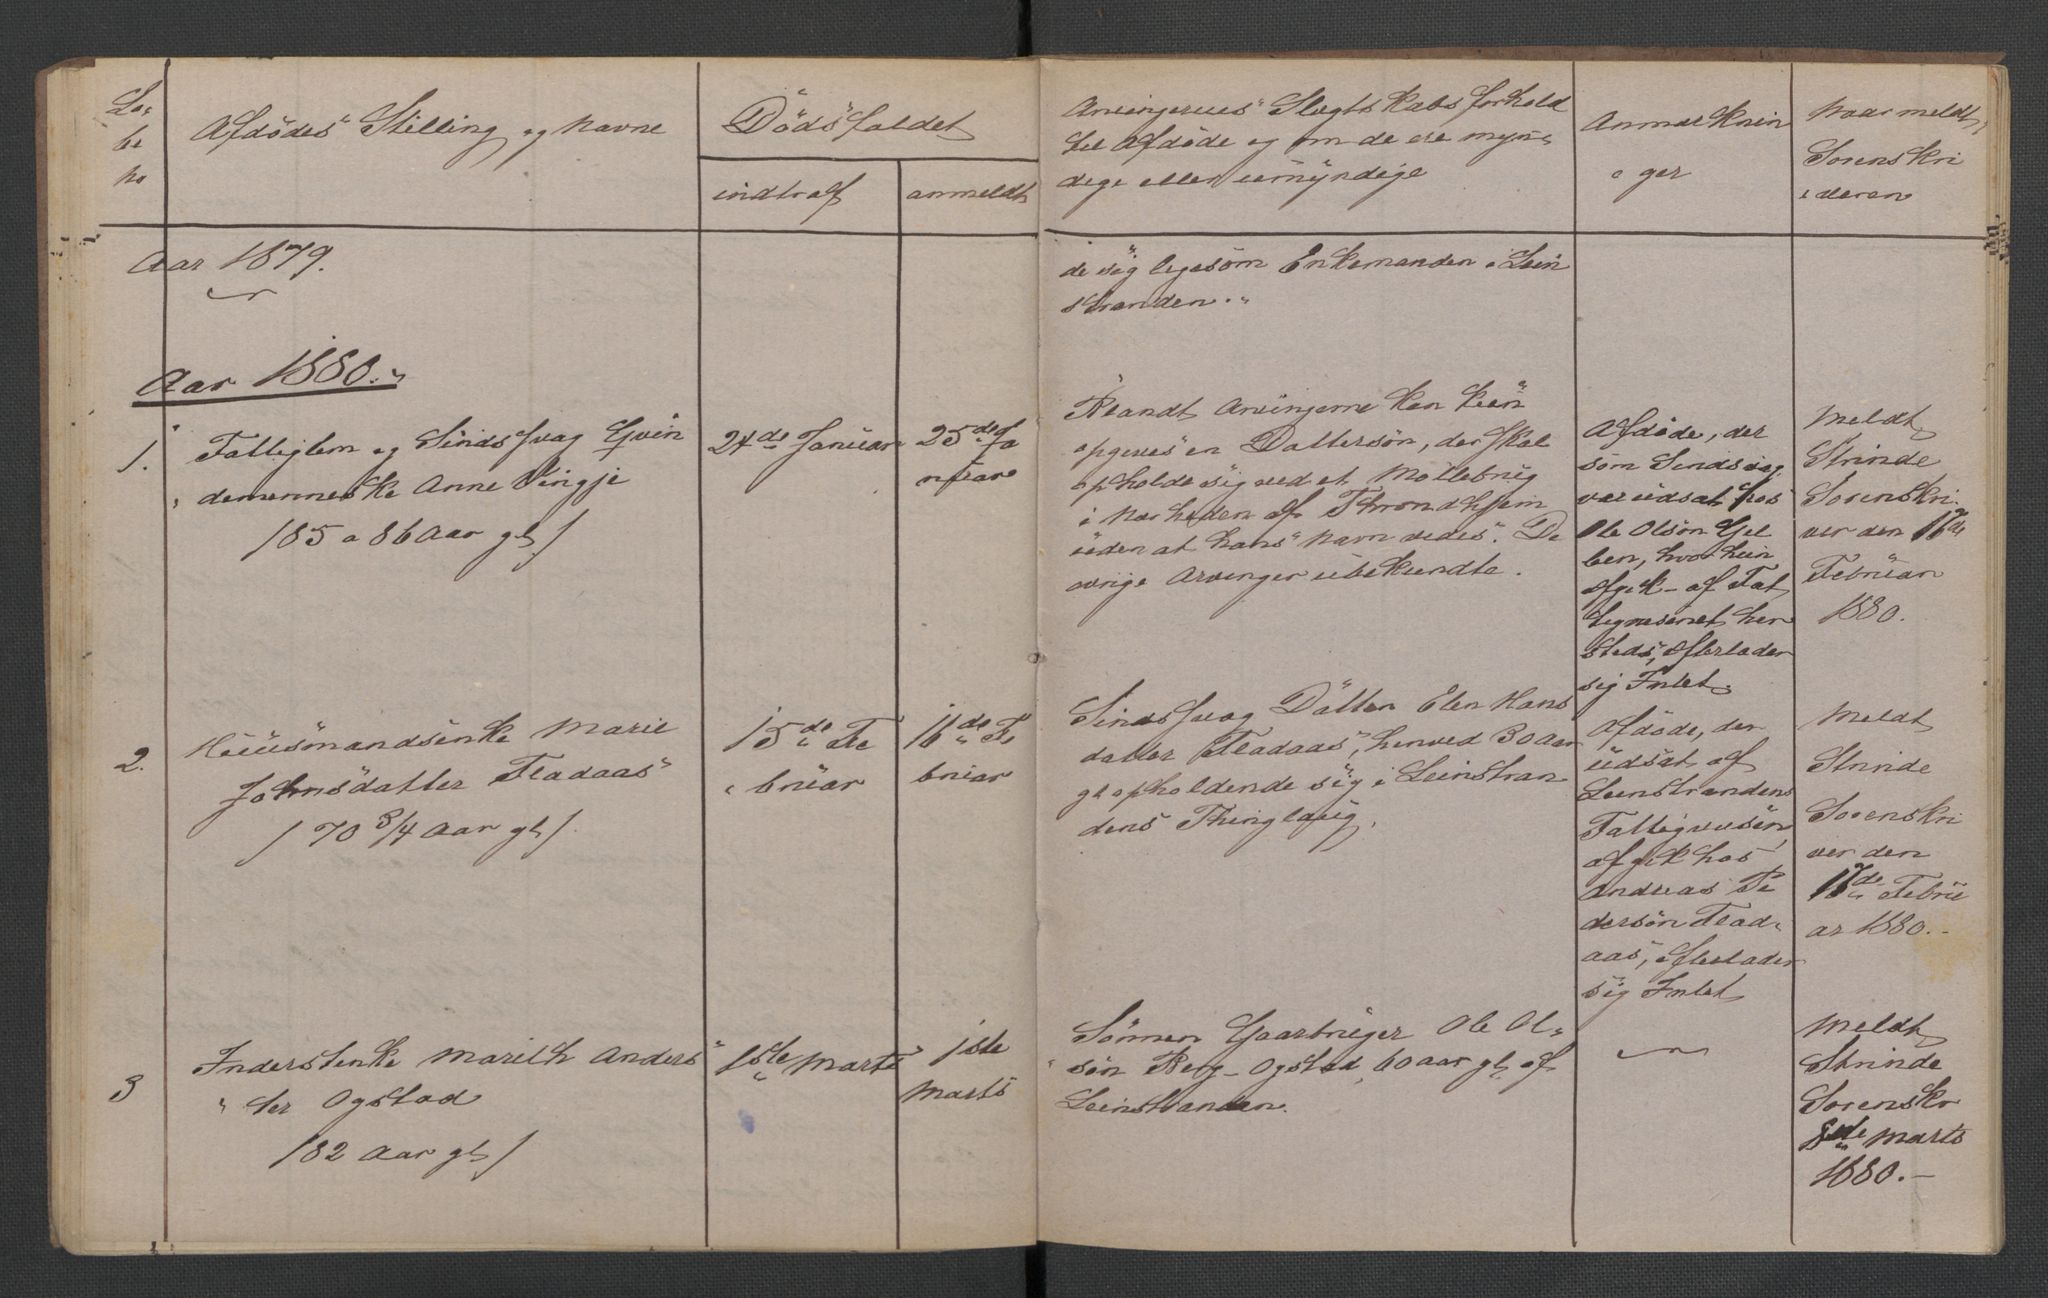 Lø-
be
No
Afdødes Stilling og Navne
Dödsfaldet
indtraf
anmeldt
Arvingernes Slegtskabsforhold
til Afdöde og om de ere myn-
dige eller umyndige
Anmærknin
ger
Naar meldt
Sorenskri
veren
Aar 1879.
de sig ligesom Enkemanden i Lein
stranden.
Aar 1880.
1.
Fattiglem og Sindssvag Qvin
demenneske Anne Vingje
/85 a 86 Aar gl/
24de Januar
25de Ja
nuar
Blandt Arvingerne kan kun
opgives en Dattersön, der skal
opholde sig ved et Möllebrug
i Nærheden af Throndhjem
uden at hans Navn vides. De
övrige Arvinger ubekundte.
Afdöde, der
som Sindssvag
var udsat hos
Ole Olsön Gjel
ben, hvor hun
afgik - af Fat
tigvesenet her
steds, efterlader
sig Intet.
Meldt
Strinde
Sorenskri
ver den 16de
Februar
1880.
2.
Huusmandsenke Marie
Johnsdatter Fladaas
/70 3/4 Aar gl/
15de Fe
bruar
16de Fe
bruar
Sindssvag Datter Elen Hans
datter Fladaas, henved 30 Aar
gl opholdende sig i Leinstran
dens Thinglaug.
Afdöde, der
udsat af
Leinstrandens
Fattigvesen,
afgik hos
Andreas Pe
dersön Flad-
aas, efterlader
sig Intet
Meldt
Strinde
Sorenskri
ver den
16de Febru
ar 1880.-
3
Inderstenke Marith Anders
ter Ogstad
/82 Aar gl/
1ste Marts
1ste
Marts
Sönnen Gaarbruger Ole Ol-
sön Berg-Ogstad, 60 Aar gl, af
Leinstranden.
Meldt
Strinde
Sorenskr
Marts
1880.-